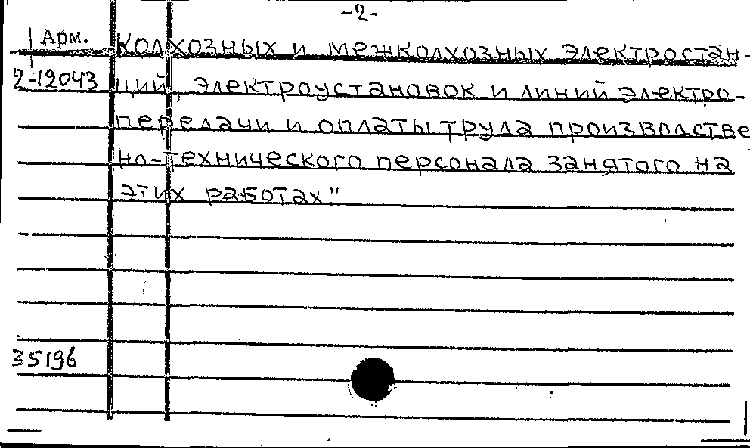 -2-
Арм.
колхозных и межколхозных электростан-
2-12043
ций, электроустановок и линий электро-
передачи и оплаты труда производстве
но-технического персонала занятого на
этих работах"
35196